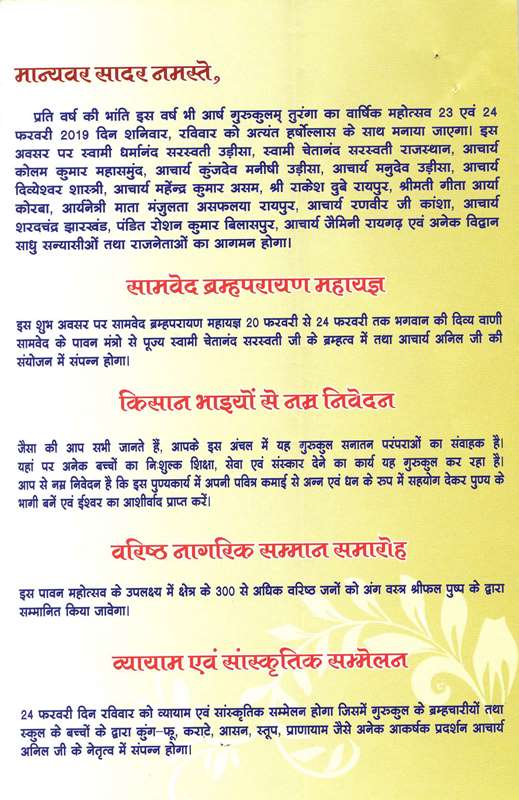 मान्यवर सादर नमस्ते,
प्रति वर्ष की भांति इस वर्ष भी आर्ष गुरुकुलम् तुरंगा का वार्षिक महोत्सव 23 एवं 24
फरवरी 2019 दिन शनिवार, रविवार को अत्यंत हर्षोल्लास के साथ मनाया जाएगा। इस
अवसर पर स्वामी धर्मानंद सरस्वती उड़ीसा, स्वामी चेतानंद सरस्वती राजस्थान, आचार्य
कोलम कुमार महासमुंद, आचार्य कुंजदेव मनीषी उड़ीसा, आचार्य मनुदेव उड़ीसा, आचार्य
दिव्येश्वर शास्त्री, आचार्य महेंन्द्र कुमार असम, श्री राकेश दुबे रायपुर, श्रीमती गीता आर्या
कोरबा, आर्यनेत्री माता मंजुलता असफलया रायपुर, आचार्य रणवीर जी कांशा, आचार्य
शरदचंद्र झारखंड, पंडित रोशन कुमार बिलासपुर, आचार्य जैमिनी रायगढ़ एवं अनेक विद्वान
साधु सन्यासीओं तथा राजनेताओं का आगमन होगा।
सामवेद ब्रम्हपरायण महायज्ञ
इस शुभ अवसर पर सामवेद ब्रम्हपरायण महायज्ञ 20 फरवरी से 24 फरवरी तक भगवान की दिव्य वाणी
सामवेद के पावन मंत्रो से पूज्य स्वामी चेतानंद सरस्वती जी के ब्रम्हत्व में तथा आचार्य अनिल जी की
संयोजन में संपन्न होगा।
किसान भाइयों से नम्र निवेदन
जैसा की आप सभी जानते हैं, आपके इस अंचल में यह गुरुकुल सनातन परंपराओं का संवाहक है।
यहां पर अनेक बच्चों का निःशुल्क शिक्षा, सेवा एवं संस्कार देने का कार्य यह गुरुकुल कर रहा है।
आप से नम्र निवेदन है कि इस पुण्यकार्य में अपनी पवित्र कमाई से अन्न एवं धन के रुप में सहयोग देकर पुण्य के
भागी बनें एवं ईश्वर का आशीर्वाद प्राप्त करें।
वरिष्ठ नागरिक सम्मान समारोह
इस पावन महोत्सव के उपलक्ष्य में क्षेत्र के 300 से अधिक वरिष्ठ जनों को अंग वस्त्र श्रीफल पुष्प के द्वारा
सम्मानित किया जावेगा।
व्यायाम एवं सांस्कृतिक सम्मेलन
24 फरवरी दिन रविवार को व्यायाम एवं सांस्कृतिक सम्मेलन होगा जिसमें गुरुकुल के ब्रम्हचारीयों तथा
स्कुल के बच्चों के द्वारा कुंग-फू, कराटे, आसन, स्तूप, प्राणायाम जैसे अनेक आकर्षक प्रदर्शन आचार्य
अनिल जी के नेतृत्व में संपन्न होगा।